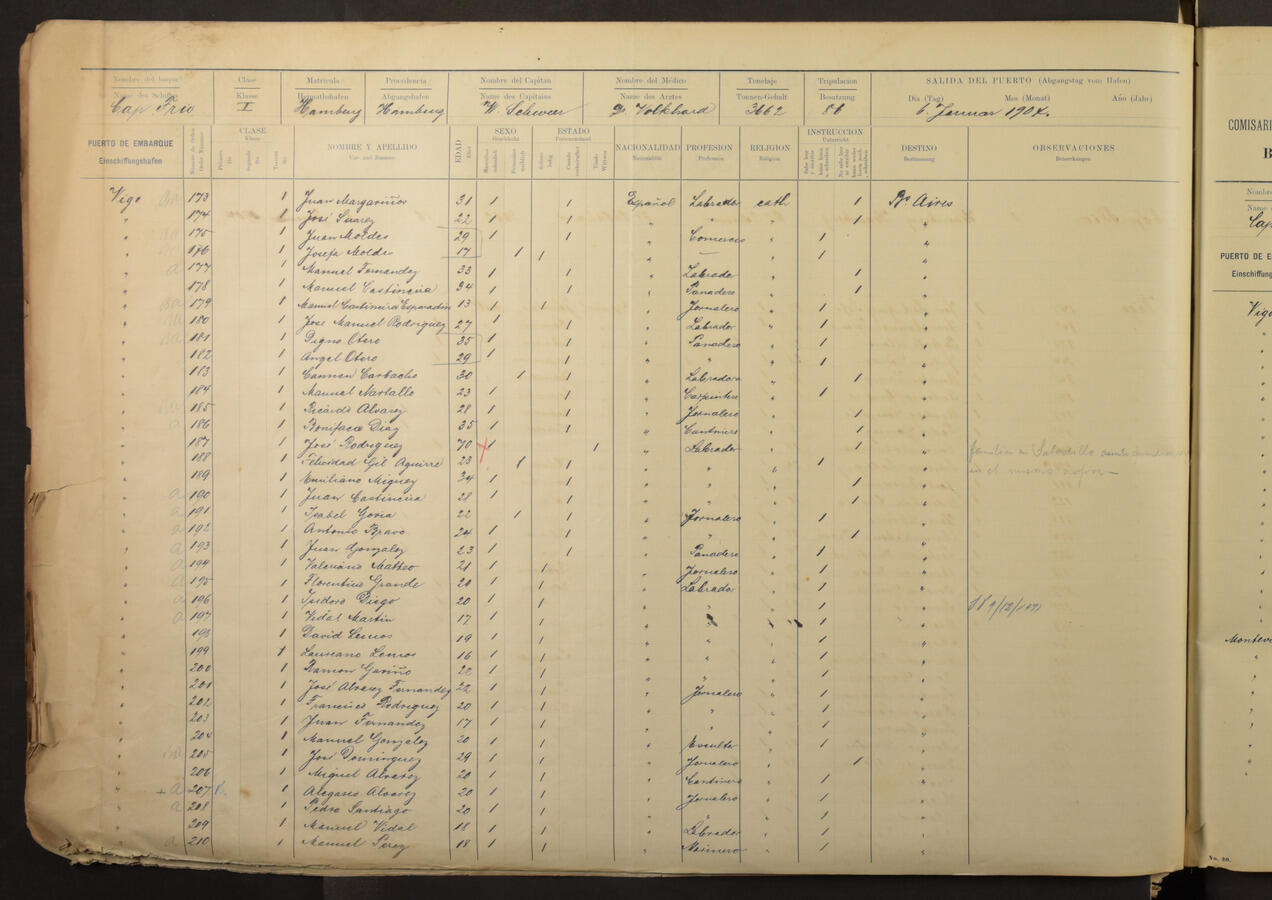 Nombre del buque Clase Matrícula Procedencia Nombre del Capitán Nombre del Médico Tonelaje Tripulacion SALIDA DEL PUERTO (Abgangstag vom Hafen)
Name des Schiffes Klasse Heimathshafen Abgangshafen Name des Capitains Name des Arztes Tonnen-Gehalt Besatzung Dia (Tag) Mes (Monat) Año (Jahr)
Cap Frio I Hamburg Hamburg W. Schweer Dr Volkhard 3662 86 6. Januar
PUERTO DE EMBARQUE CLASE NOMBRE Y APELLIDO EDAD SEXO ESTADO NACIONALIDAD PROFESION RELIGION INSTRUCCION DESTINO OBSERVACIONES
Einschiffungshafen Klasse Vor- und Zuname Alter Geschlecht Familienstand Nationalität Profession Religion Unterricht Bestimmung Bemerkungen
Vigo 173 1 Juan Margariños 31 1 1 Español Labrador cath 1 Bs Aires
" 174 1 José Suarez 22 1 1 " " " 1 "
" 175 1 Juan Moldes 29 1 1 " Comercio " 1 "
" 176 1 Josefa Molde 17 1 1 " — " 1 "
" 177 1 Manuel Fernandez 33 1 1 " Labrador " 1 "
" 178 1 Manuel Castineira 34 1 1 " Panadero " 1 "
" 179 1 Manuel Castineira Esparadin 13 1 1 " Jornalero " 1 "
" 180 1 José Manuel Rodriguez 27 1 1 " Labrador " 1 "
" 181 1 Digno Otero 35 1 1 " Panadero " 1 "
" 182 1 Angel Otero 29 1 1 " " " 1 "
" 183 1 Carmen Carbacho 30 1 1 " Labradora " 1 "
" 184 1 Manuel Nartallo 23 1 1 " Carpintero " 1 "
" 185 1 Ricardo Alvarez 28 1 1 " Jornalero " 1 "
" 186 1 Boniface Diaz 35 1 1 " Cantinero " 1 "
" 187 1 José Rodriguez 70 1 1 " Labrador " 1 "
" 188 1 Felicidad Gil Aguirre 23 1 1 " " " 1 "
" 189 1 Emiliano Miguez 34 1 1 " " " 1 "
" 190 1 Juan Castineira 28 1 1 " " " 1 "
" 191 1 Isabel Goria 22 1 1 " Jornalero " 1 "
" 192 1 Antonio Bravo 24 1 1 " " " 1 "
" 193 1 Juan Gonzalez 23 1 1 " Panadero " 1 "
" 194 1 Valeriano Matteo 21 1 1 " Jornalero " 1 "
" 195 1 Florentino Grande 20 1 1 " Labrador " 1 "
" 196 1 Isidoro Diego 20 1 1 " " " 1 "
" 197 1 Vidal Martin 17 1 1 " " " 1 "
" 198 1 David Lemos 19 1 1 " " " 1 "
" 199 1 Laureano Lemos 16 1 1 " " " 1 "
" 200 1 Ramon Gariño 22 1 1 " " " 1 "
" 201 1 José Alvarez Fernandez 22 1 1 " Jornalero " 1 "
" 202 1 Francisco Rodriguez 20 1 1 " " " 1 "
" 203 1 Juan Fernandez 17 1 1 " " " 1 "
" 204 1 Manuel Gonzalez 20 1 1 " " 1 "
" 205 1 José Dominguez 29 1 1 " Jornalero " 1 "
" 206 1 Miguel Alvarez 20 1 1 " Cantinero " 1 "
" 207 1 Alvarez 20 1 1 " Jornalero " 1 "
" 208 1 Pedro Santiago 20 1 1 " " " 1 "
" 209 1 Manuel Vidal 18 1 1 " Labrador " 1 "
" 210 1 Manuel Perez 18 1 1 " Marinero " 1 "
COMISARI
Nombre
Name
Cap
PUERTO DE E
Einschiffung
Vigo
Montevi
No. 20.